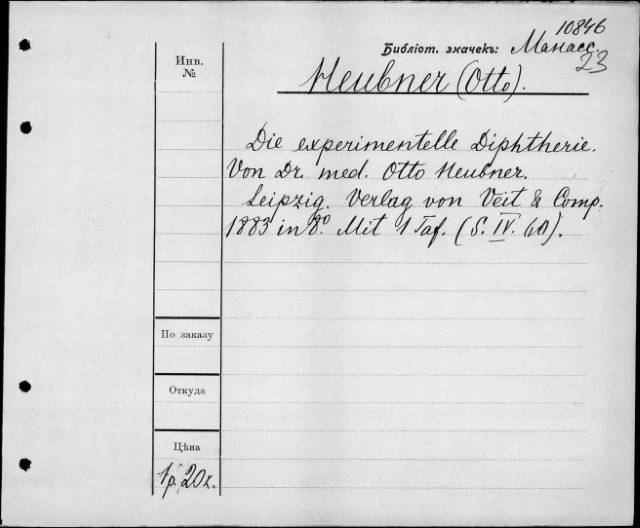 10846
Библіот. значекъ: Манасс.
23
Инв.
№
Heubner (Otto).
Die experimentelle Diphtherie.
Von Dr. med. Otto Heubner.
Leipzig. Verlag von Veit & Comp.
1883 in 8° Mit 1 Taf. (S. IV. 60).
По заказу
Откуда
Цѣна
1р. 20к.